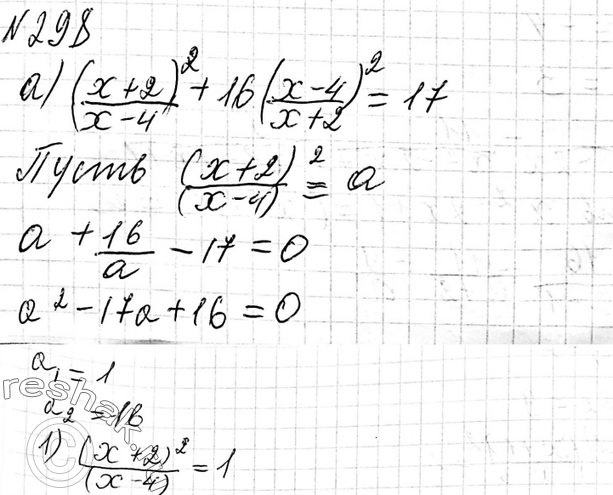 №298
а) ((x+2)/(x-4))² + 16((x-4)/(x+2))² = 17
Пусть (x+2)/(x-4) ² = a
a + 16/a - 17 = 0
a² - 17a + 16 = 0
a₁ = 1
a₂ = 16
1) (x+2)²/(x-4) = 1
reshak
©